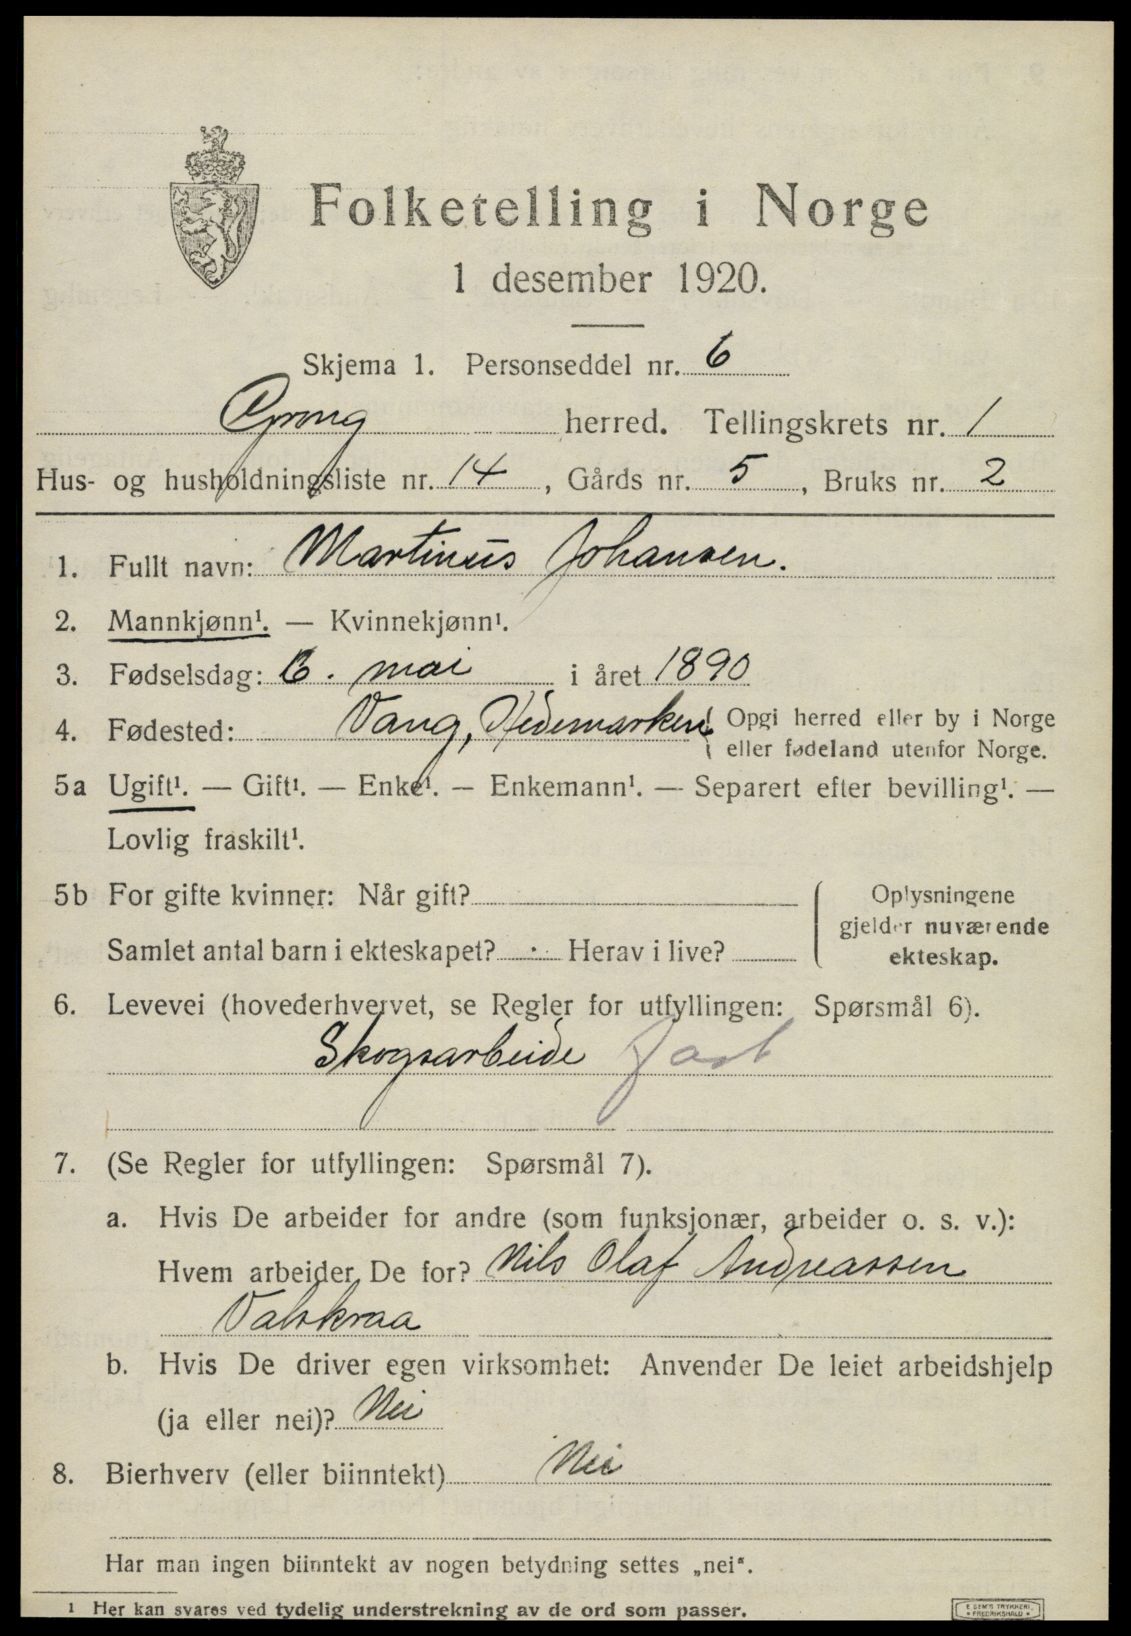 Folketelling i Norge
1 desember 1920.
Skjema 1. Personseddel nr. 6
Grong herred. Tellingskrets nr. 1
Hus- og husholdningsliste nr. 14, Gårds nr. 5, Bruks nr. 2
1. Fullt navn: Martinus Johansen.
2. Mannkjønn¹. — Kvinnekjønn¹.
3. Fødselsdag: 6. mai i året 1890
4. Fødested: Vang, Hedemarken { Opgi herred eller by i Norge
eller fødeland utenfor Norge.
5a Ugift¹. — Gift¹. — Enke¹. — Enkemann¹. — Separert efter bevilling¹. —
Lovlig fraskilt¹.
5b For gifte kvinner: Når gift?
Samlet antal barn i ekteskapet? Herav i live?
Oplysningene
gjelder nuværende
ekteskap.
6. Levevei (hovederhvervet, se Regler for utfyllingen: Spørsmål 6).
Skogsarbeide fast
7. (Se Regler for utfyllingen: Spørsmål 7).
a. Hvis De arbeider for andre (som funksjonær, arbeider o. s. v.):
Hvem arbeider De for? Nils Olaf Andreassen
Valskraa
b. Hvis De driver egen virksomhet: Anvender De leiet arbeidshjelp
(ja eller nei)? Nei
8. Bierhverv (eller biinntekt) Nei
Har man ingen biinntekt av nogen betydning settes „nei".
1 Her kan svares ved tydelig understrekning av de ord som passer.
E SEM'S TRYKKERI
FREDRIKSHALD